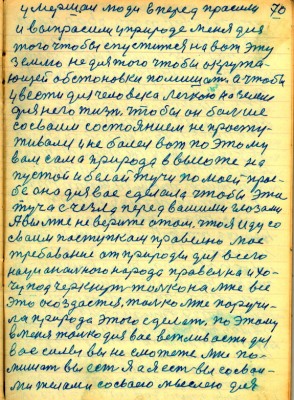 умерши люди вперед прасили 70
и выпрасили у природе меня для
того чтобы спустится на вот эту
землю не для того чтобы окружа-
ющей обстоновки помишат, а чтобы
ввести для человека легкою на земли
для него жизн, чтобы он больше
со своим состоянием не просту-
живался и не болел вот по этому
вам сама природа в высоте на
пустой и белай тучи по моей прос-
бе она для вас сделала чтобы эта
туча счезла перед вашими глазами
А вы мне не верите о том, что я иду со
своим паступкам правельно мае
требавание от природы для всего
нацианалного народа правелна и хо-
чу подчеркнут толко на мне все
это создается, толко мне поручи-
ла природа этого сделать, по этому
в меня толко для вас вежливасти для
вас силы вы не сможете мне по-
мишат вы ест я а я ест вы со сваи-
ми телами со сваею мыслею для